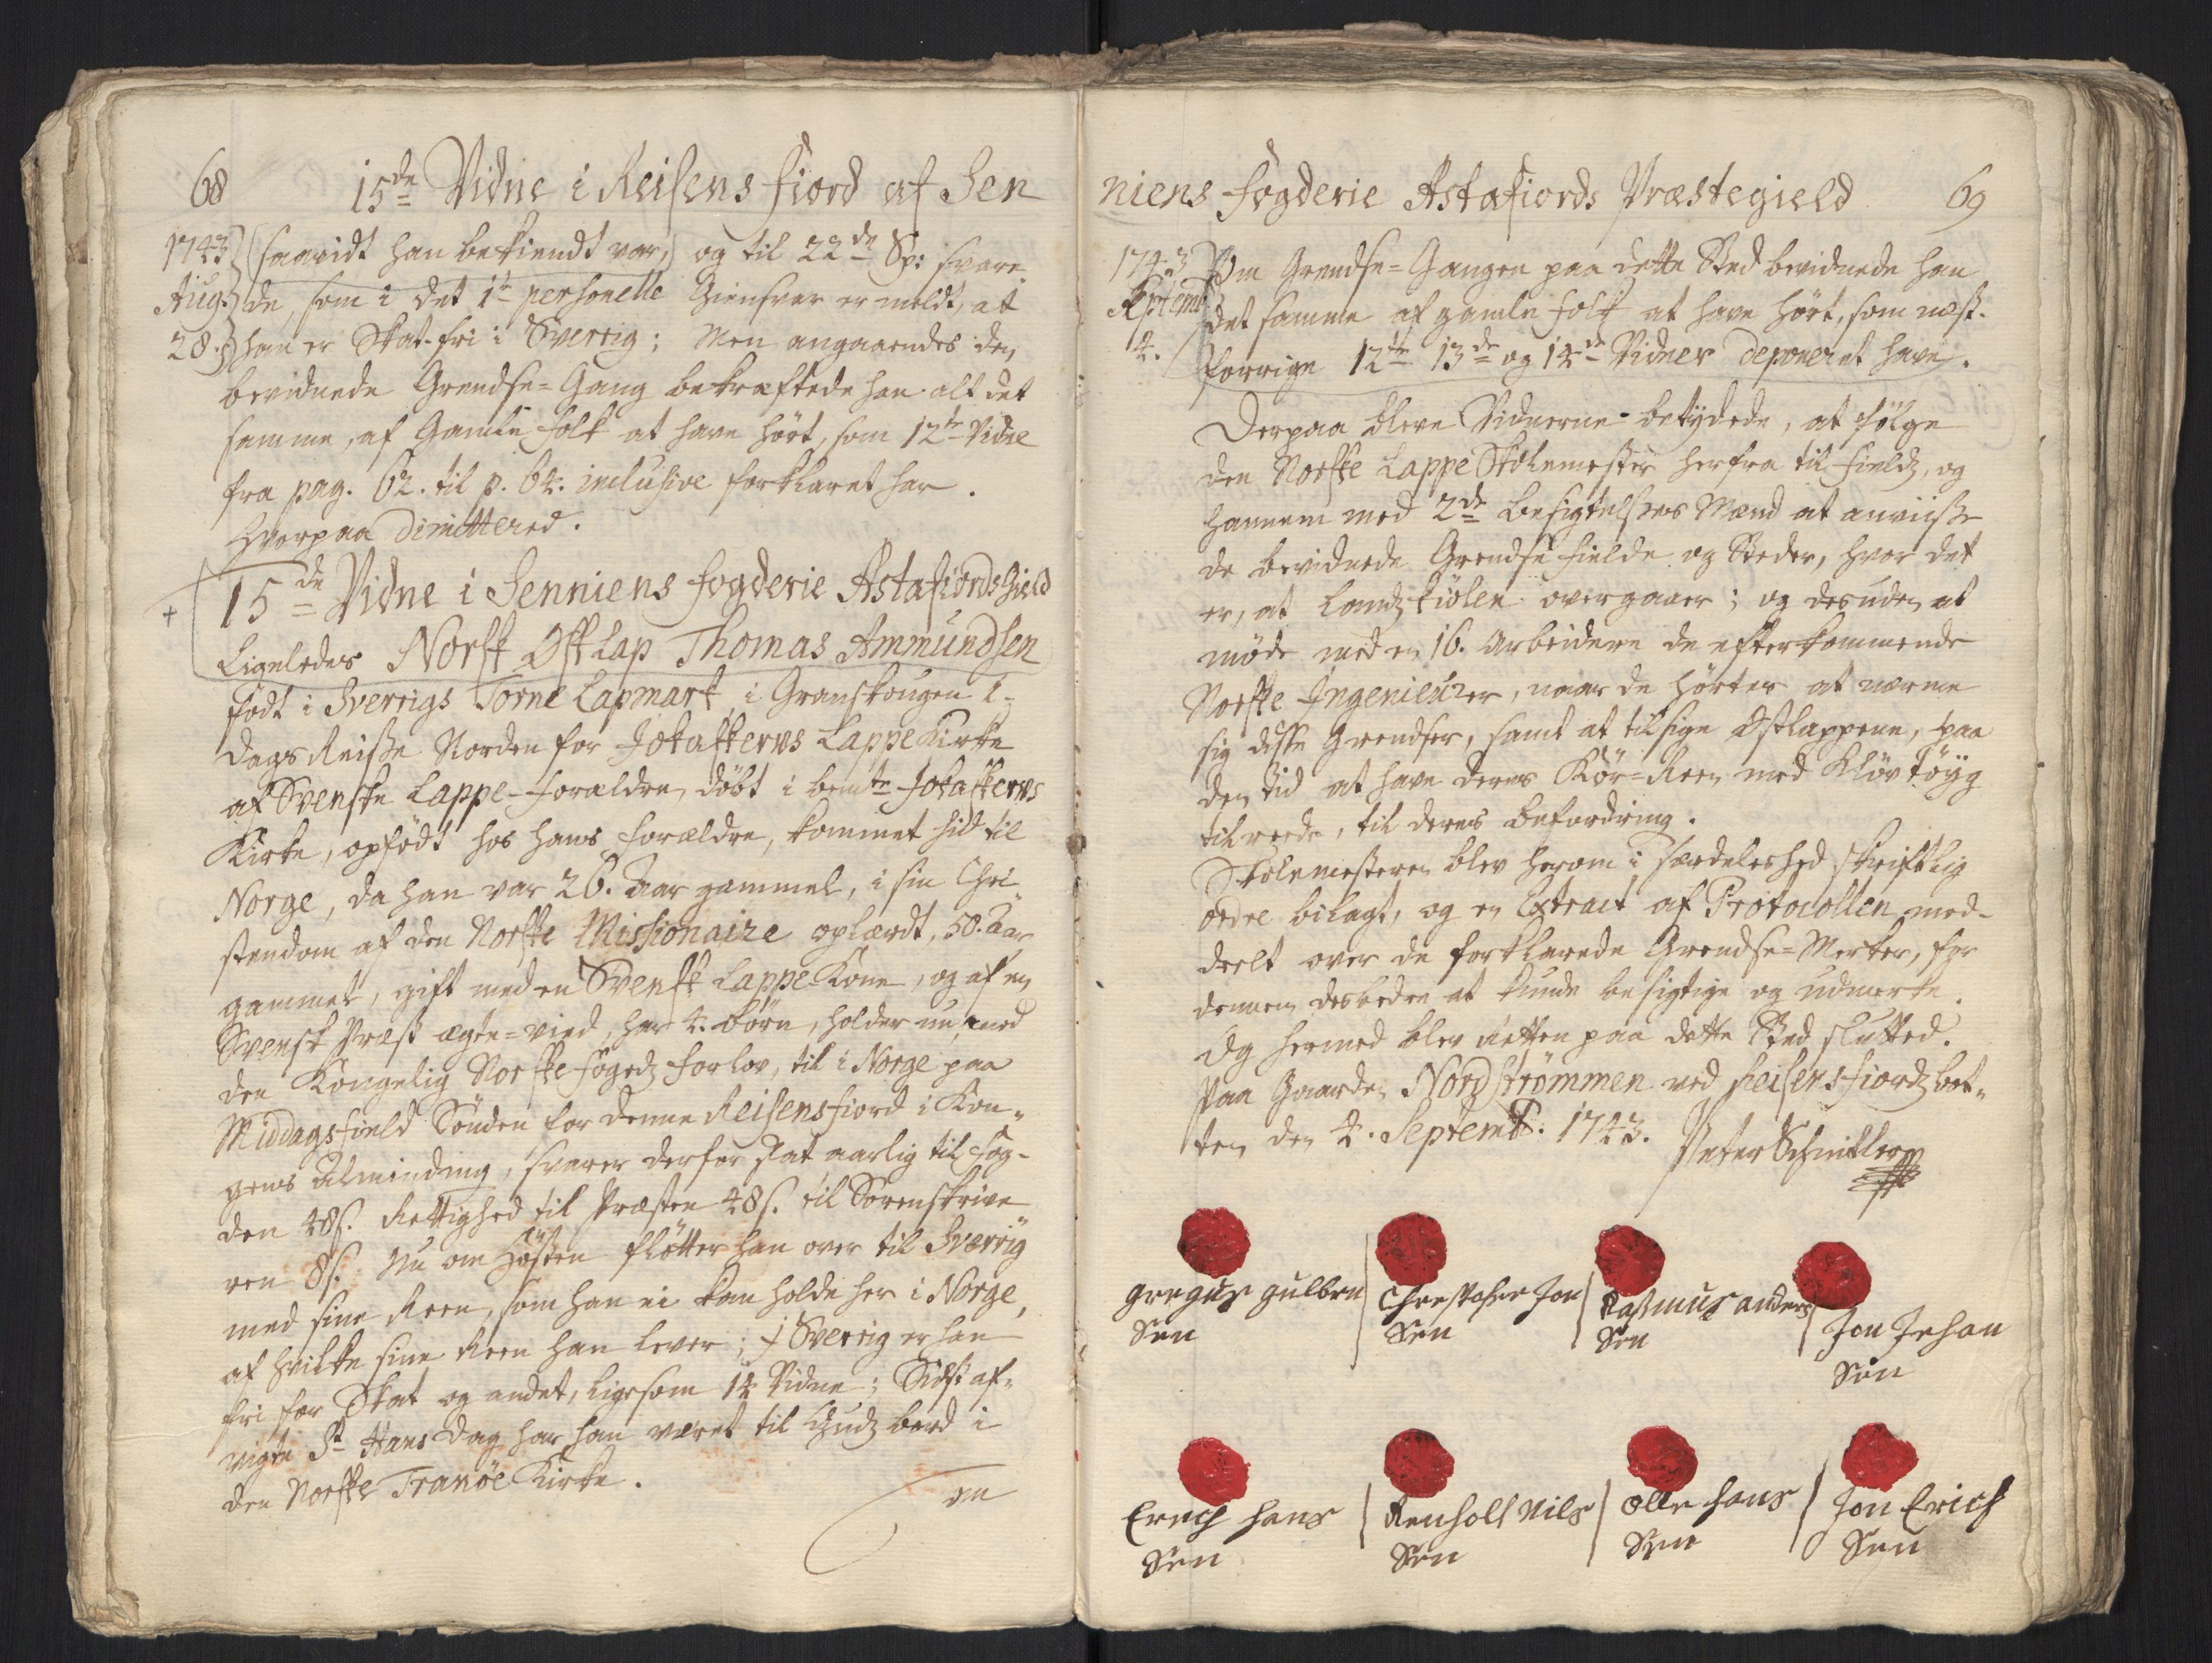 68
15de Vidne i Reisens fiord af Sen
1743
Aug:
28.
(saavidt han bekiendt var,) og til 22de Sp: svare
de, som i det 1te personelle Giensvar er meldt, at
han er Skat-fri i Sverrig; Men angaaendes den
bevidnede Grendse=Gang bekraeftede han alt det
samme, af Gamle folk at have hört, som 12te Vidne
fra pag. 62. til p. 64. inclusive forklaret har.
Hvorpaa dimittered.
+
15de Vidne i Senniens fogderie Astafiords Gield
Ligeledes Norsk Öst Lap Thomas Ammundsen
födt i Sverrigs Torne Lapmark i Granskougen 1-
dags Reise Norden for Jokaskerws Lappe Kirke
af Svenske Lappe-forældre, döbt i bemte Jokaskerws
Kirke, opfödt hos hans forældre, kommet hid til
Norge, da han var 26. Aar gammel, i sin Chri
stendom af den Norske Missionaire oplærdt, 50. Aar
gammel, gift med en Svensk Lappe Kone, og af en
Svensk Præst ægte=vied, har 4. börn, holder nu, med
den Kongelig Norske fogeds forlov, til i Norge paa
Middagsfield Sönden for denne Reisensfiord i Kon-
gens Alminding, svarer derfor skat aarlig til fog-
den 48 s. Rettighed til Præsten 48 s. til Sorenskrive
ren 8 s. Nu om Hösten flötter han over til Sverrig
med sine Reen, som han ei kan holde her i Norge,
af hvilke sine Reen han lever; i Sverrig er han
fri for Skat og andet, ligesom 14 Vidne; Sidst af-
vigte St Hans Dag har han været til Guds bord i
den Norske Tranöe Kirke.
Om
niens fogderie Astafiords Præstegield
69
1743
Septemb:
4.
Om Grendse=Gangen paa dette Sted bevidnede han
det samme af gamle folk at have hört, som næst-
forrige 12te 13de og 14de Vidner deponeret have.
Derpaa bleve Vidnerne betydede, at fölge
den Norske Lappe Skolemester herfra til fields, og
hannem med 2de Besigtelses Mænd at anviise
de bevidnede Grendse fielde og Steder, hvor det
er, at Landz kiölen overgaaer; og desuden at
möde med en 16. Arbeidere de efterkommende
Norske Ingenieurer, naar de hörtes at nærme
sig disse Grendser, samt at tilsige Östlappene, paa
den tid at have deres Kör=Reen med Klöv Töyg
til rede, til deres befordring.
Skolemesteren blev herom i særdeleshed skriftlig
ordre bilagt, og en Extract af Protocollen med-
deelt over de forklarede Grendse=Merker, for
dennem desbedre at kunde besigtige og udmerke.
Og hermed blev Retten paa dette Sted slutted.
Paa Gaarden Nordströmmen ved Reisensfiords bot-
ten den 4. Septembr: 1743. Peter Schnitler
gregus gulbran
Sen
Chrestofer Jon
Sen
Rasmus anders
Sen
Jon Johan
Sön
Erich hans
Sen
Renholt Nils
Sen
olle hans
Sen
Jon Erich
Sen